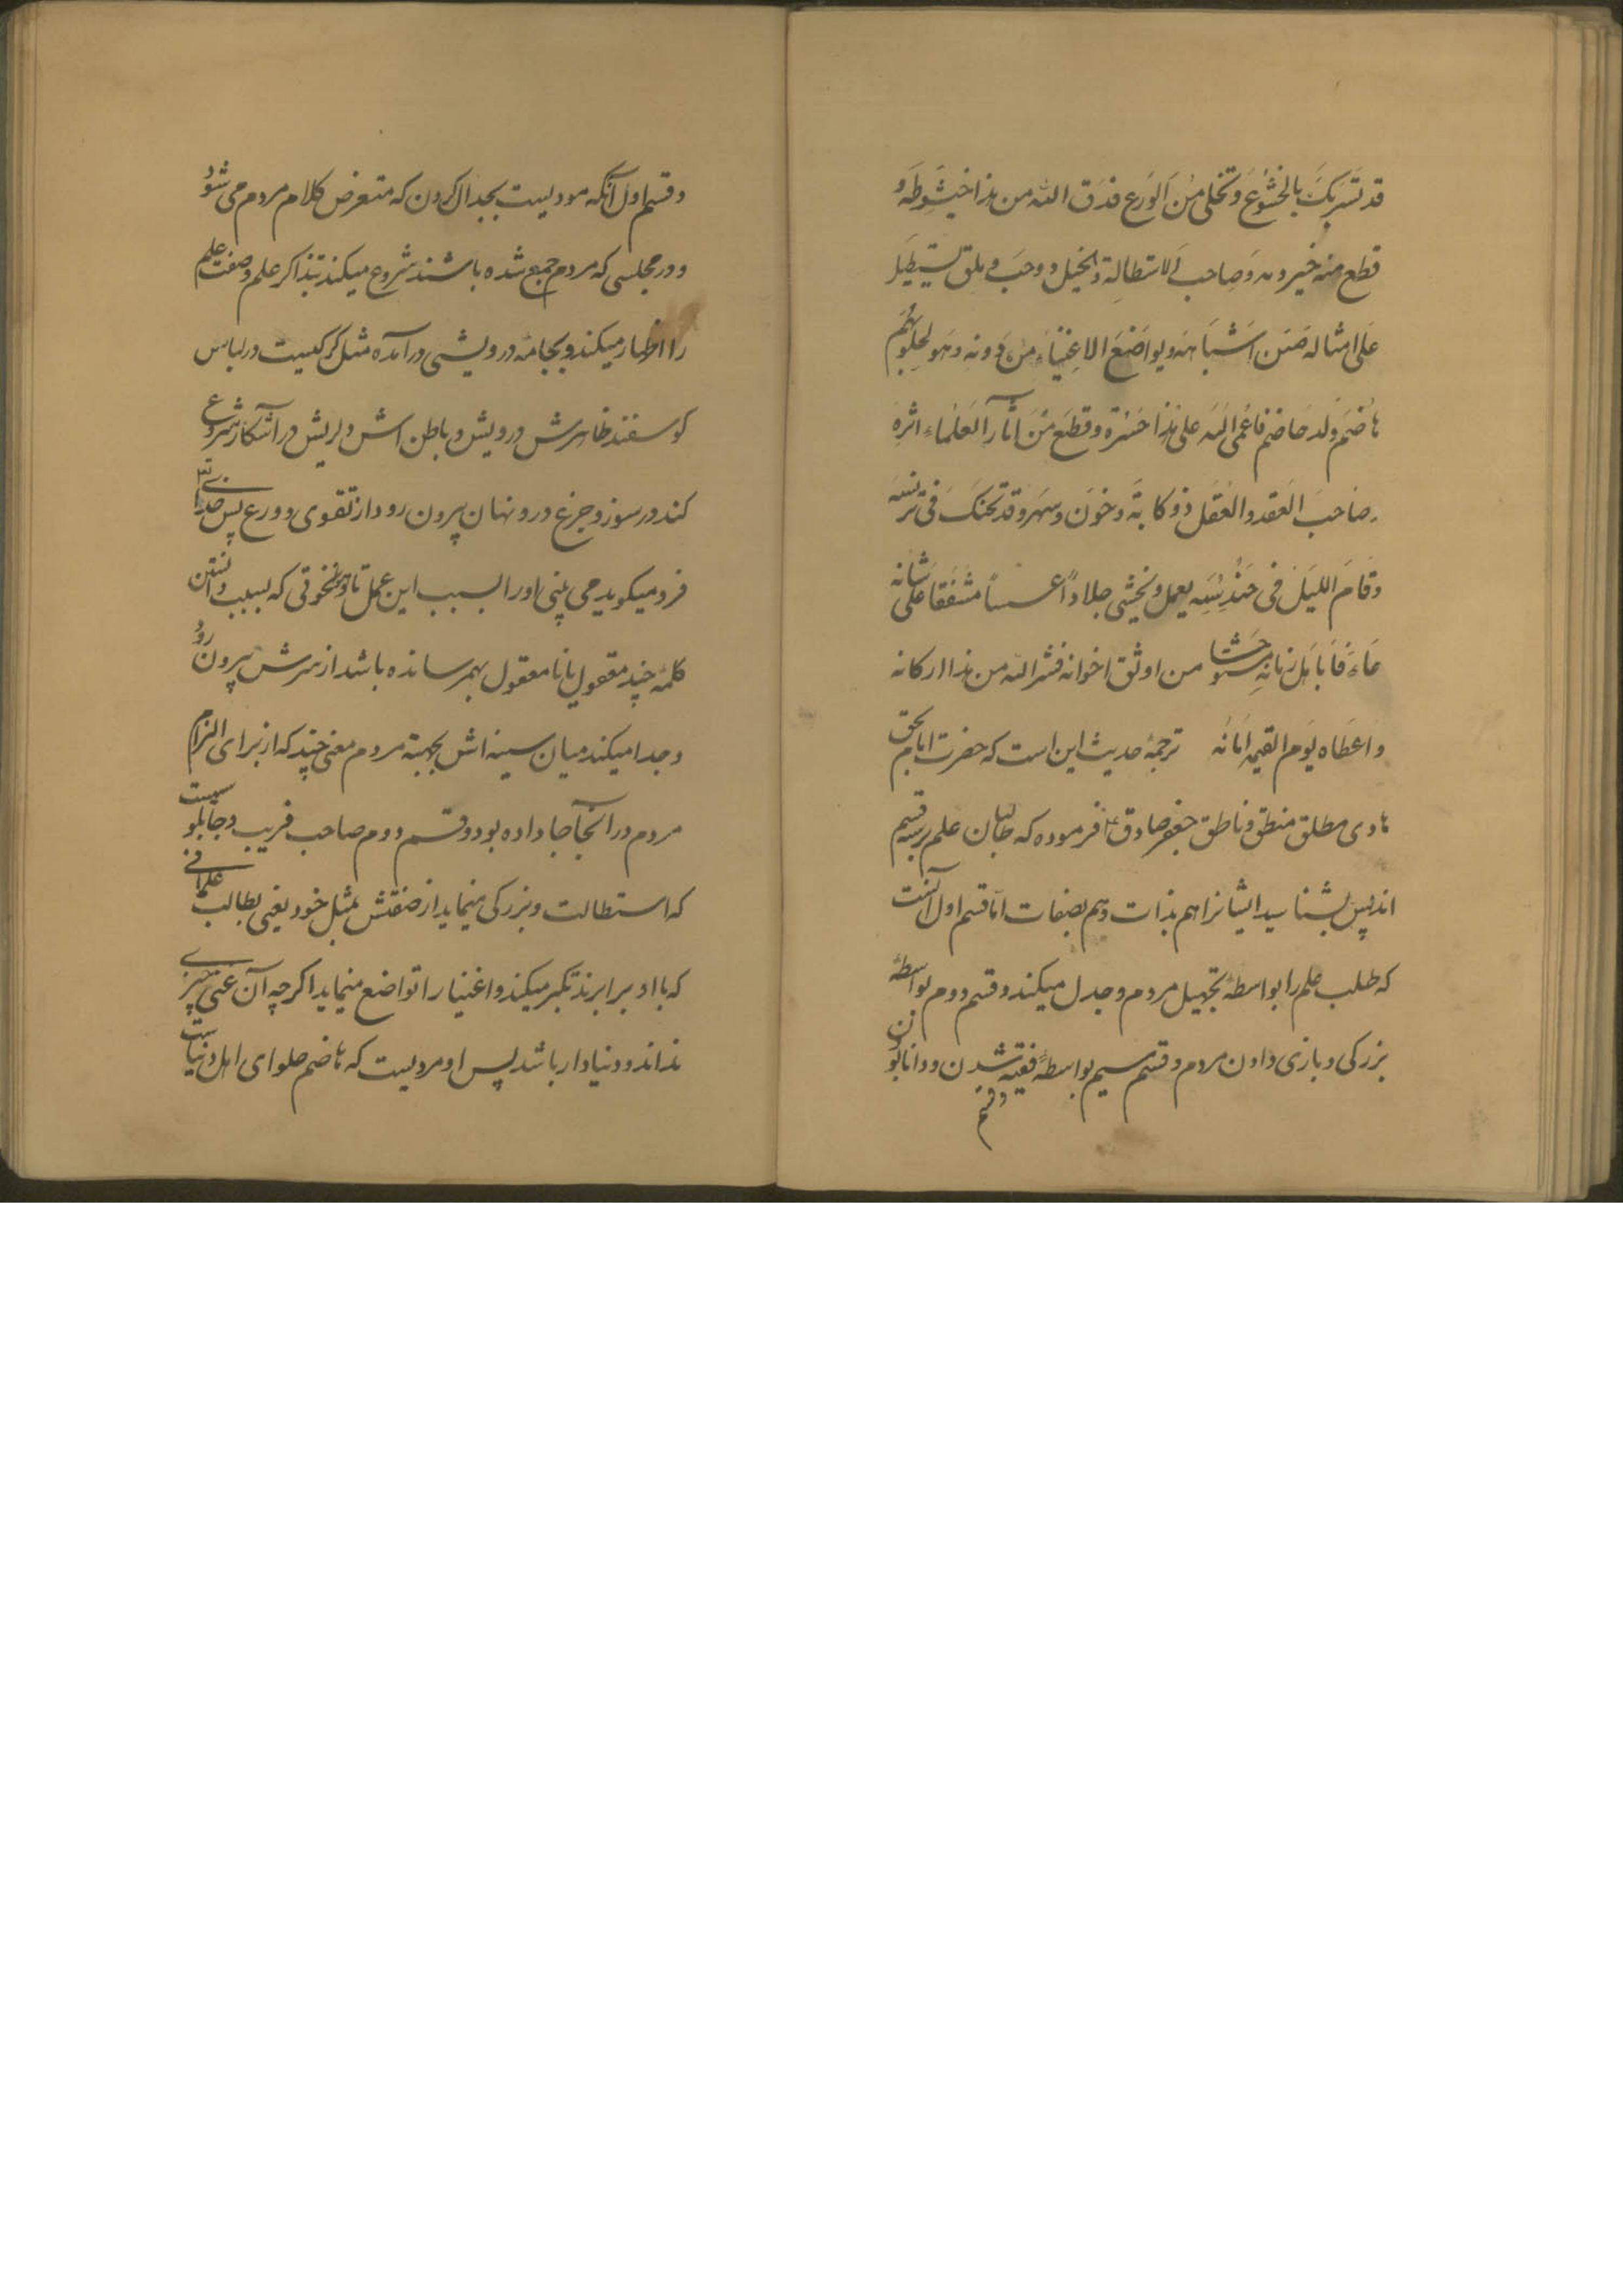 قد تسربل بالخشوع و تخلى من الورع فدق الله من هذا خيشومه و
قطع منه حيزومه و صاحب الاستطالة و الختل ذو خب و ملق يستطيل
على امثاله من اشباهه و يواضع الاغنياء من دونه و هو لحلوائهم
هاضم و لدينه حاضم فاعمى الله على هذا خبره و قطع من آثار العلماء اثره
و صاحب العقد و العقل ذو كآبة و حزن و سهر و قد تحنك فى برنسه
و قام الليل فى حندسه يعمل و يخشى مشفقا على شانه
من اوثق اخوانه فشد الله من هذا اركانه
و اعطاه يوم القيمه امانه ترجمهٔ حديث اين است كه حضرت امام بحق
هادى مطلق منطق و ناطق جعفر صادق ع فرموده كه طالبان علم بر سه قسم
اند پس بشناسيد ايشانرا هم بذات و هم بصفات اما قسم اول آنست
كه طلب علم را بواسطهٔ تجهيل مردم و جدل ميكند و قسم دوم بواسطهٔ
بزركى و بازى دادن مردم و قسم سيم بواسطهٔ فقيه شدن و دانا بودن
و قسم
و قسم اول آنكه موذيست بجدال كردن كه متعرض كلام مردم مى شود
و در مجلسى كه مردم جمع شده باشند شروع ميكند بتذاكر علم و صفت علم
را اظهار ميكند و بجامهٔ درويشى درآمده مثل كركيست در لباس
كوسفند ظاهرش درويش و باطن اش دلريش در آشكار شروع
كند در سوز و جزع و در نهان بيرون رود از تقوى و ورع پس خدا
فرو ميكوبد مى بينى او را بسبب اين عمل تا نخوتى كه بسبب دانستن
كلمهٔ چند معقول يا نا معقول بهمرسانده باشد از سرش بيرون رود
و جدا ميكند ميان سينه اش بجهت مردم معنى چند كه از براى الزام
مردم در آنجا جا داده بود و قسم دوم صاحب فريب و چاپلوسيست
كه استطالت و بزركى مينمايد از صنفش بمثل خود يعنى بطالب علمانى
كه با او برابرند تكبر ميكند و اغنيا را تواضع مينمايد اكرچه آن غنى چيزى
نداند و دنيادار باشد پس او مرديست كه هاضم حلواى اهل دنياست